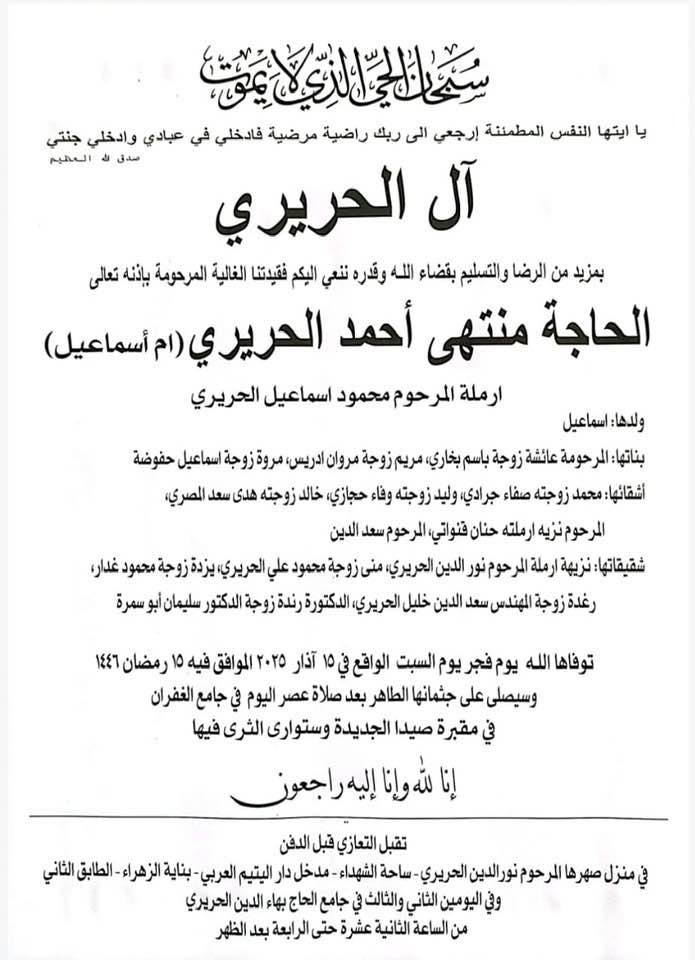 سبحان الحي الذي لا يموت
يا ايتها النفس المطمئنة إرجعي الى ربك راضية مرضية فادخلي في عبادي وادخلي جنتي
صدق لله العظيم
آل الحريري
بمزيد من الرضا والتسليم بقضاء الله وقدره ننعي اليكم فقيدتنا الغالية المرحومة بإذنه تعالى
الحاجة منتهى أحمد الحريري (ام أسماعيل)
ارملة المرحوم محمود اسماعيل الحريري
ولدها: اسماعيل
بناتها: المرحومة عائشة زوجة باسم بخاري، مريم زوجة مروان ادريس، مروة زوجة اسماعيل حفوضة
أشقائها: محمد زوجته صفاء جرادي، وليد زوجته وفاء حجازي، خالد زوجته هدى سعد المصري،
المرحوم نزيه ارملته حنان قنواتي، المرحوم سعد الدين
شقيقاتها: نزيهة ارملة المرحوم نور الدين الحريري، منى زوجة محمود علي الحريري، يزدة زوجة محمود غدار،
رغدة زوجة المهندس سعد الدين خليل الحريري، الدكتورة رندة زوجة الدكتور سليمان أبو سمرة
توفاها الله يوم فجر يوم السبت الواقع في ١٥ آذار ٢٠٢٥ الموافق فيه ١٥ رمضان ١٤٤٦
وسيصلى على جثمانها الطاهر بعد صلاة عصر اليوم في جامع الغفران
في مقبرة صيدا الجديدة وستوارى الثرى فيها
إنا لله وإنا إليه راجعون
تقبل التعازي قبل الدفن
في منزل صهرها المرحوم نورالدين الحريري - ساحة الشهداء - مدخل دار اليتيم العربي - بناية الزهراء - الطابق الثاني
وفي اليومين الثاني والثالث في جامع الحاج بهاء الدين الحريري
من الساعة الثانية عشرة حتى الرابعة بعد الظهر